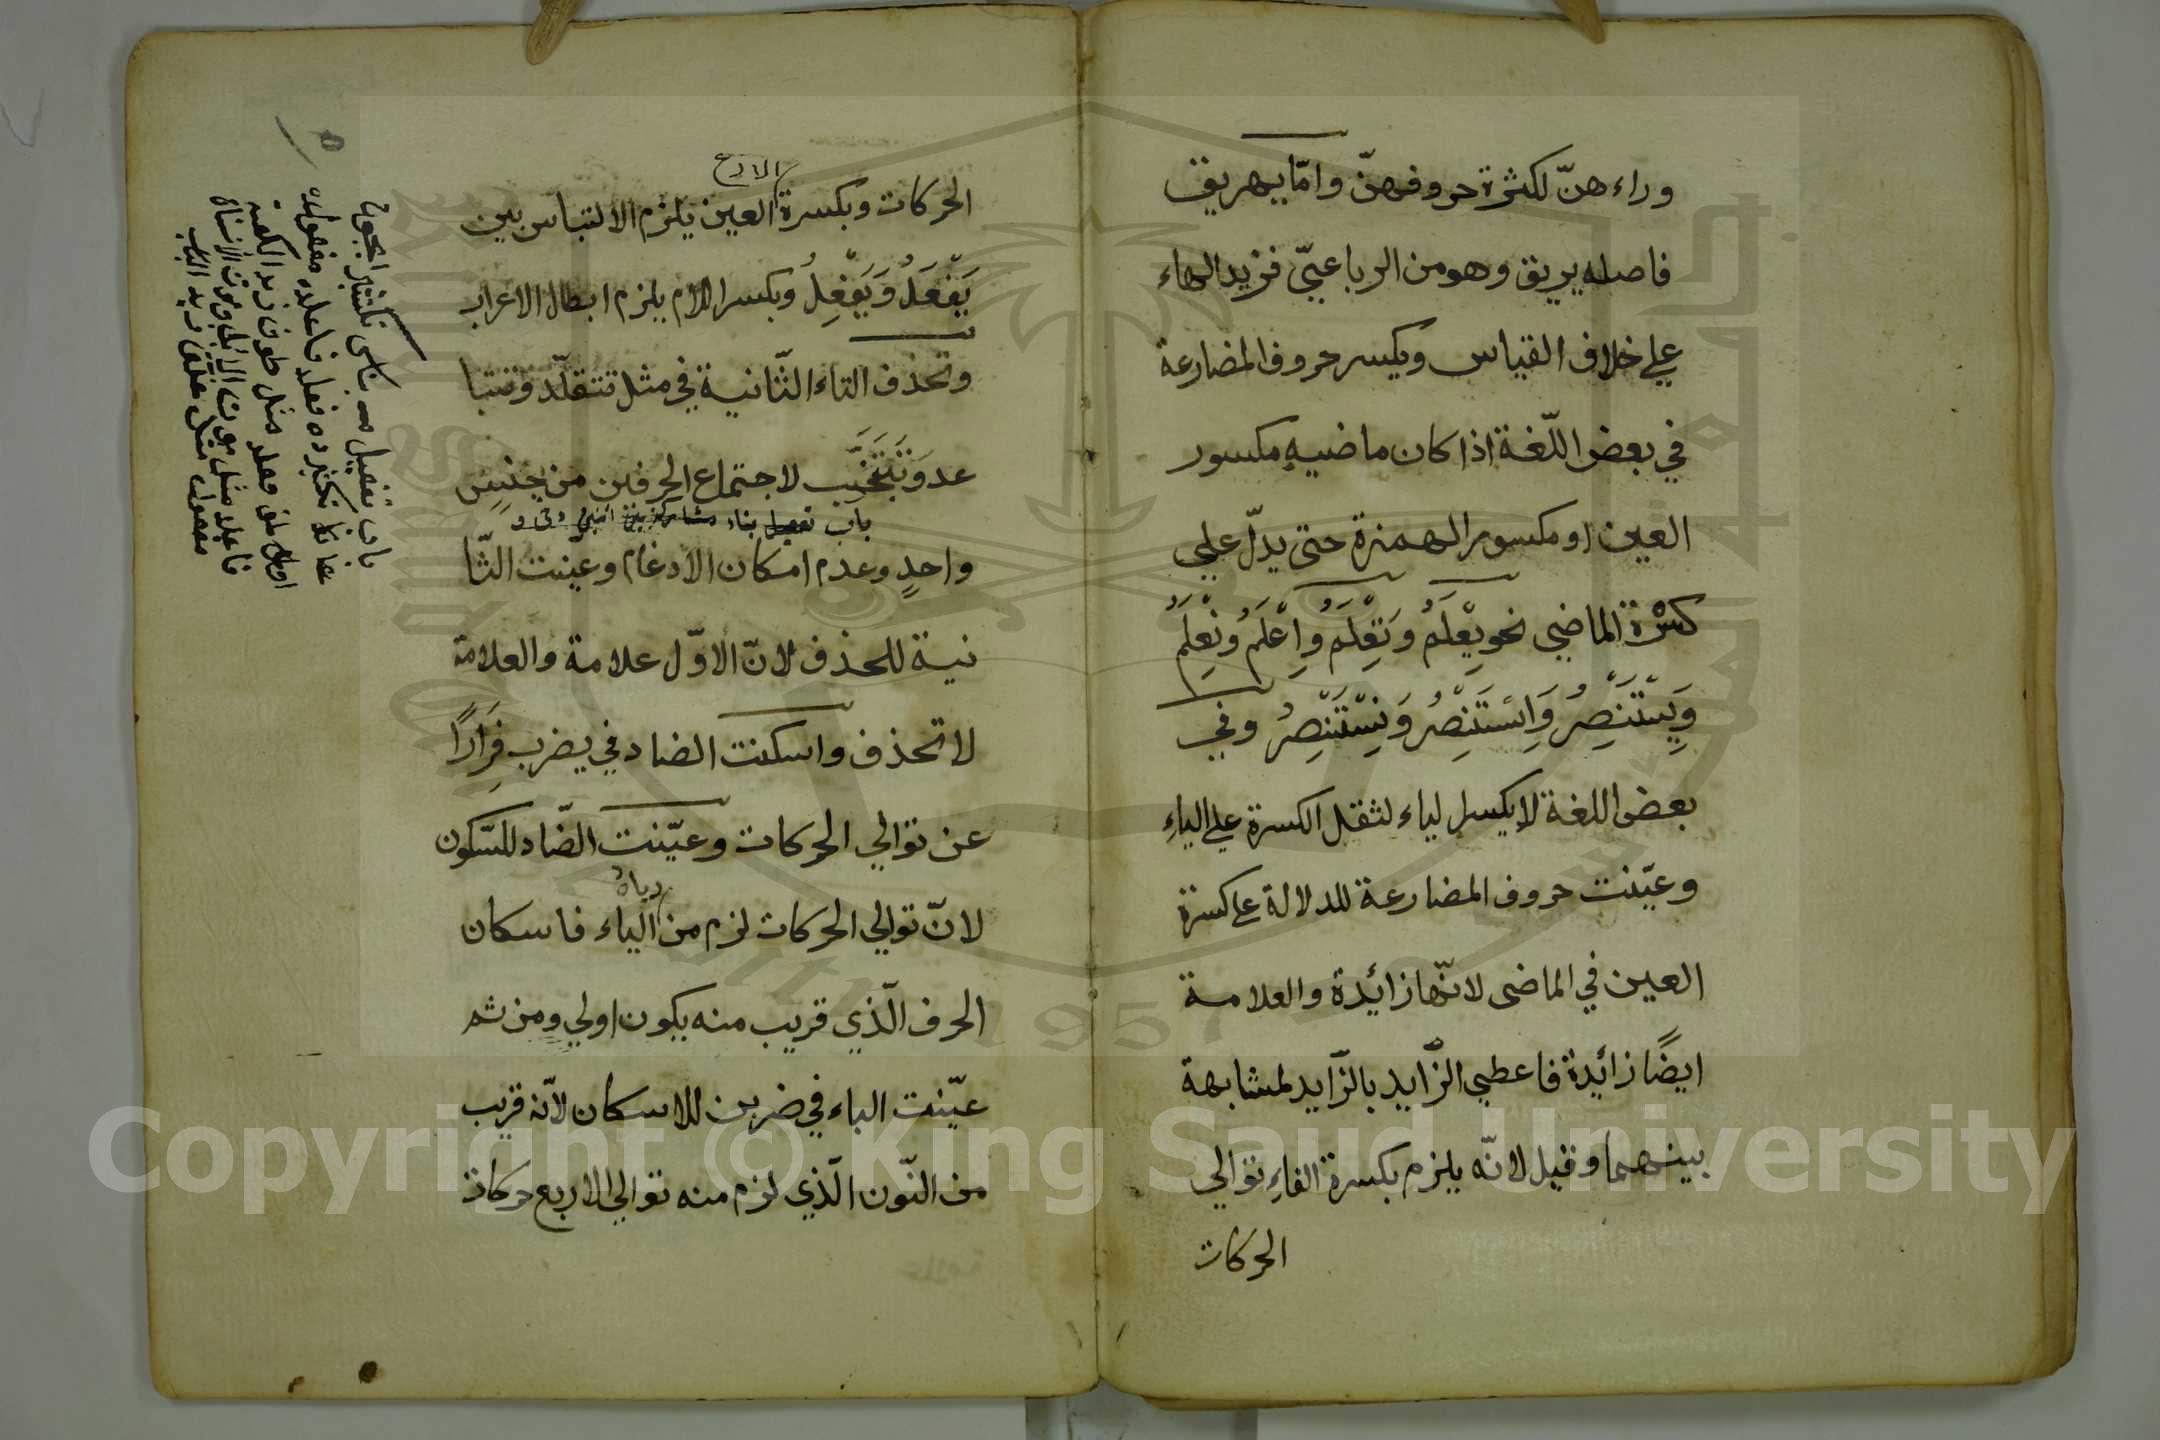 وراءهنّ لكثرة حروفهنّ وامّا يهريق
فاصله يريق وهو من الرباعيّ فزيد الهاء
علي خلاف القياس ويكسر حروف المضارعة
في بعض اللّغة اذا كان ماضيه مكسور
العين او مكسور الهمزة حتى يدلّ علي
كسْرة الماضي نحو يِعْلَمُ وَتِعْلَمُ وَاِعْلَمُ ونِعْلَمُ
وَيِسْتَنْصِرُ وَاِسْتَنْصِرُ وَنِسْتَنْصِرُ وفي
بعض اللغة لا يكسر لياء لثقل الكسرة علي الياءِ
وعيّنت حروف المضارعة للدلالة علي كسرة
العين في الماضى لانّها زائدة والعلامة
ايضًا زائدة فاعطي الزّايد بالزّايد لمشابهة
بينهما وقيل لانّه يلزم بكسرة الفاءِ توالي
الحركات
الاربع
الحركات وبكسرة العين يلزم الالتباس بين
يَفْعَلُ وَيَفْعِلُ وبكسر اللام يلزم ابطال الاعراب
وتحذف التاء الثّانية في مثل تتقلّد وتتبا
عد وَتَتَبَخْتَر لاجتماع الحرفين من جنسٍ
باب تفعيل بناء مشاركت بين
واحدٍ وعدم امكان الادغام وعينت الثّا
نية للحذف لانّ الاوّل علامة والعلامة
لا تحذف واسكنت الضاد في يضرب فِرَارًا
عن توالي الحركات وعيّنت الضّاد للسّكون
لانّ توالي الحركات لزم من الياء فاسكان
الحرف الّذي قريب منه يكون اولي ومن ثم
عيّنت الباء في ضربن للاسكان لانّه قريب
من النّون الّذي لزم منه توالي الاربع حركات
باب تفعيل
Copyright © King Saud University
1957